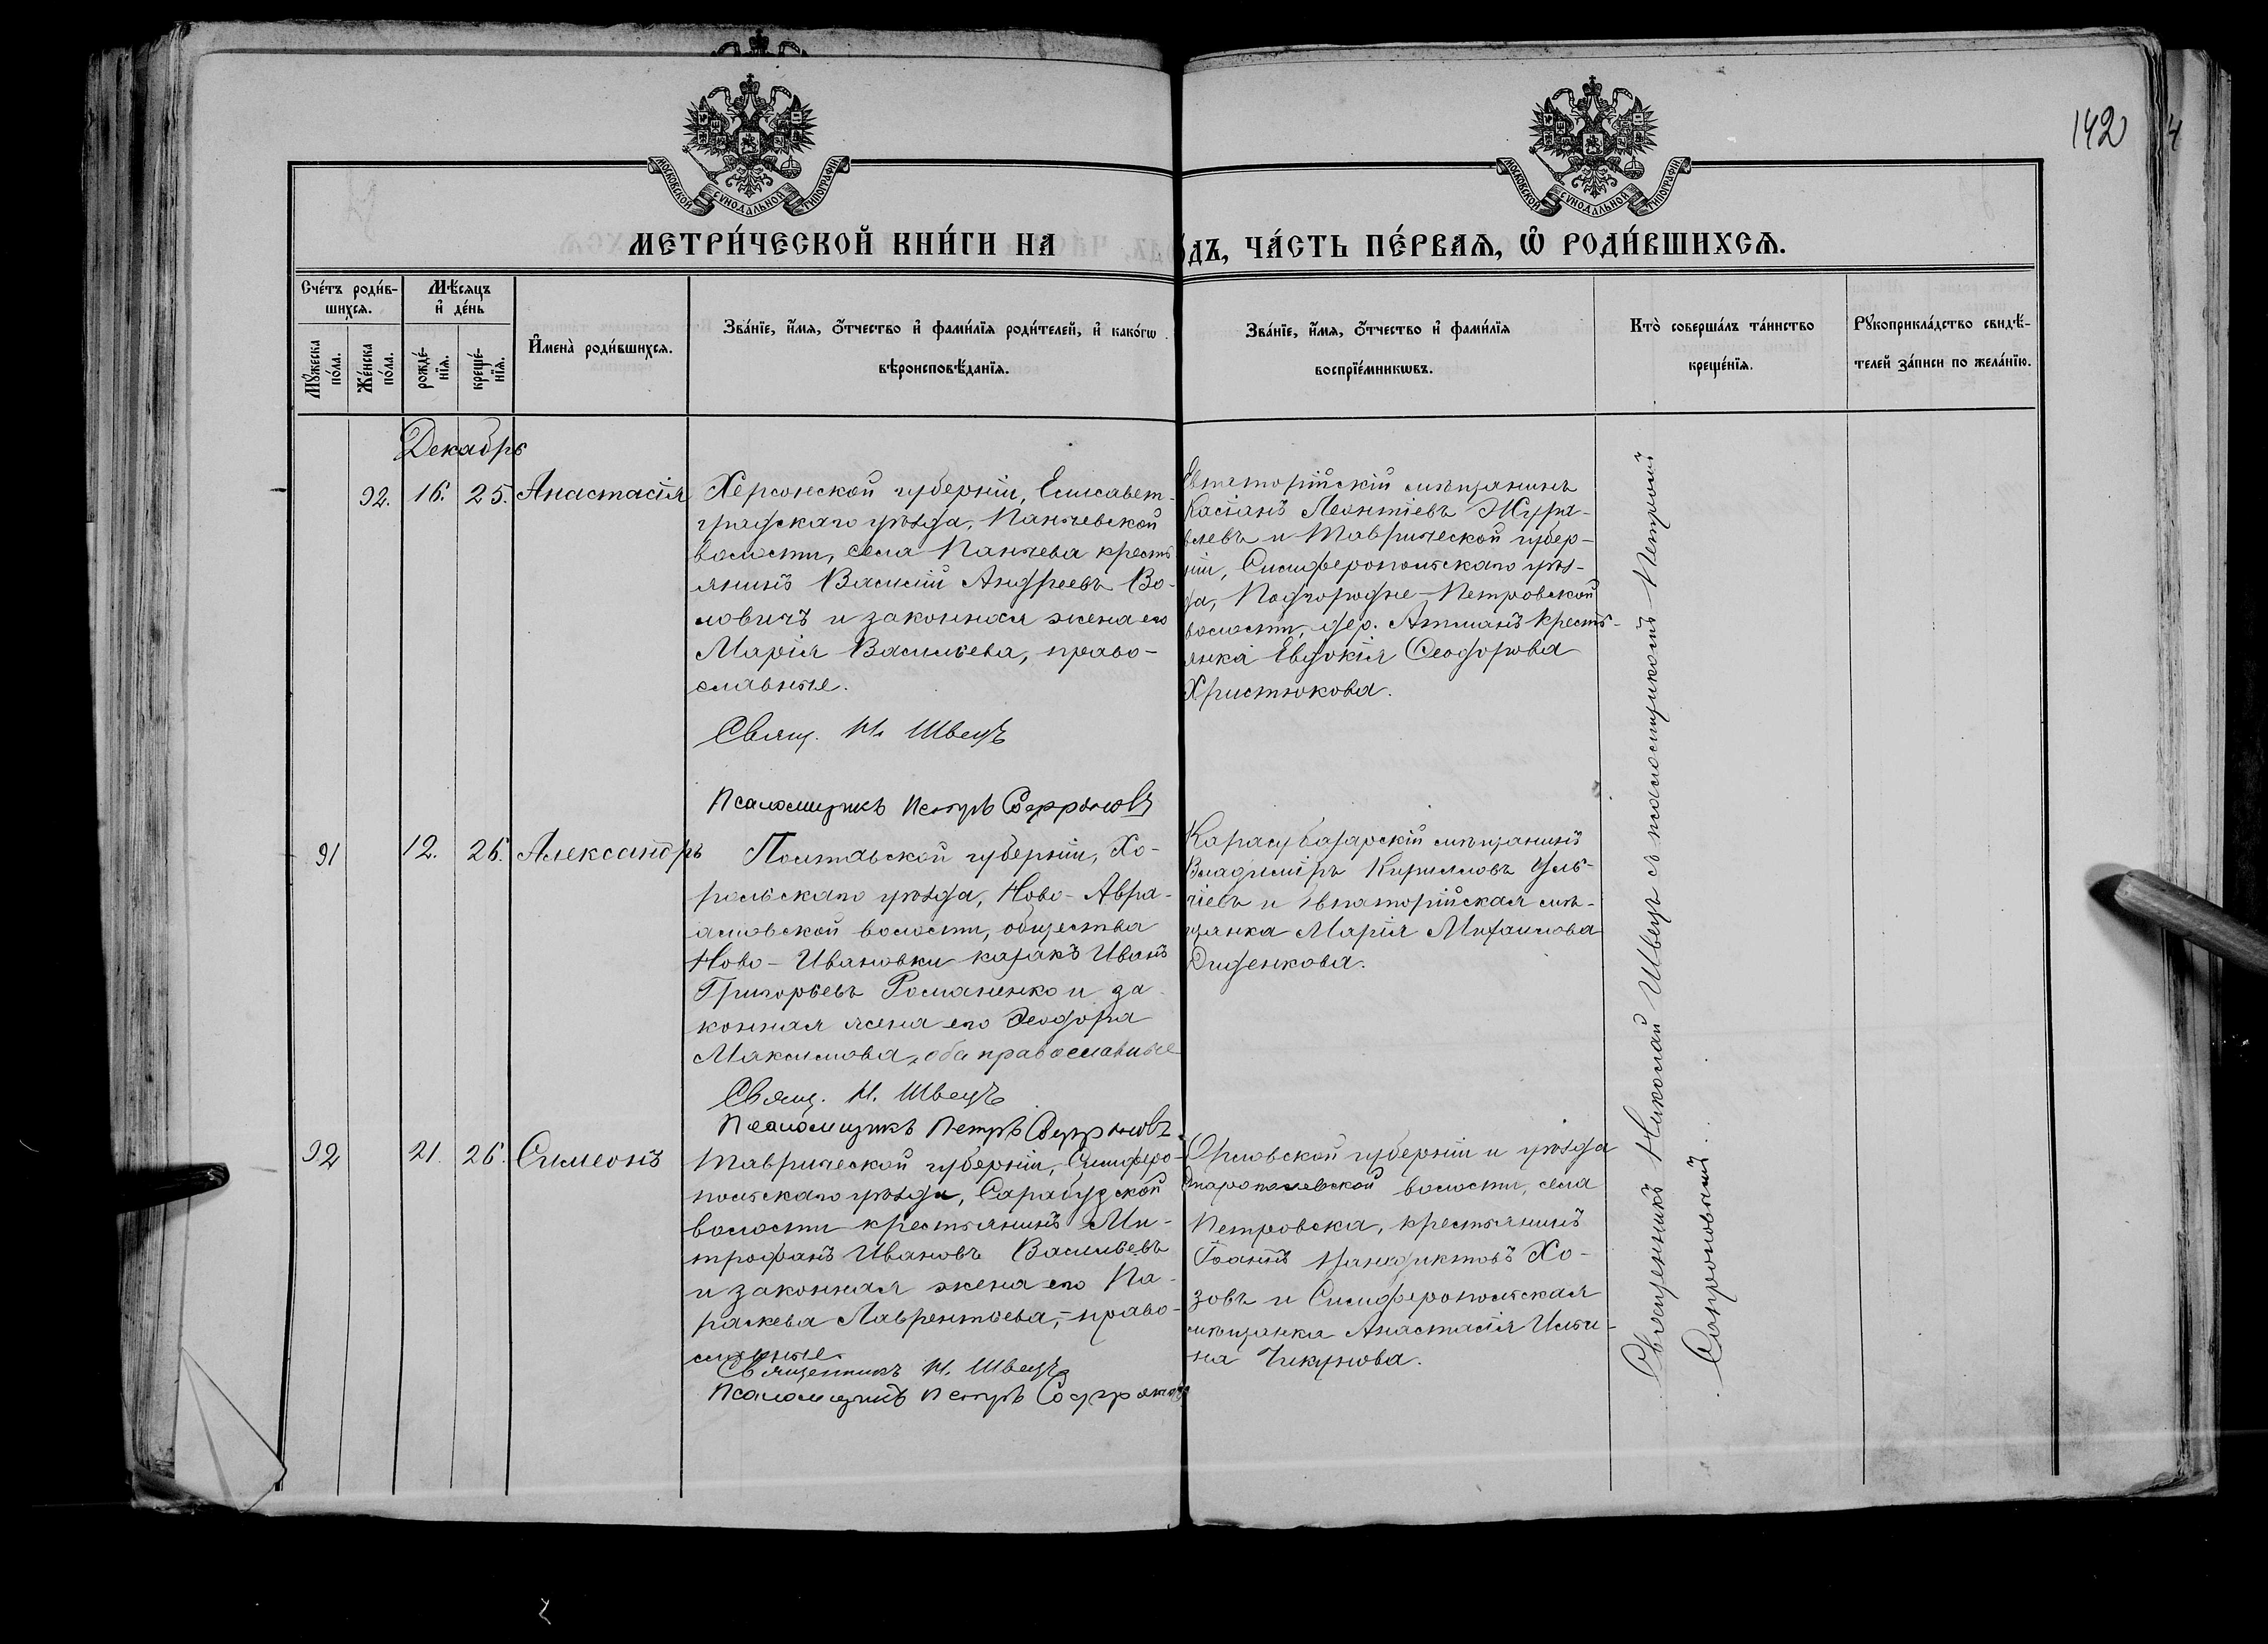 142
МОСКОВСКОЙ СѴНОДАЛЬНОЙ ТИПОГРАФІИ
МОСКОВСКОЙ СѴНОДАЛЬНОЙ ТИПОГРАФІИ
МЕТРИ́ЧЕСКОЙ КНИ́ГИ НА
ДЪ, ЧА́СТЬ ПЕ́РВАѦ, Ѡ҆ РОДИ́ВШИХСѦ.
Сче́тъ роди́в-
шихсѧ.
Мꙋ́жеска по́ла.
Же́нска по́ла.
Мѣ́сѧцъ
и҆ де́нь
рожде́-
нїѧ.
креще́-
нїѧ.
И҆мена̀ роди́вшихсѧ.
Зва́нїе, и҆́мѧ, ѻ҆́тчество и҆ фами́лїѧ роди́телей, и҆ како́гѡ
вѣроисповѣ́данїѧ.
Зва́нїе, и҆́мѧ, ѻ҆́тчество и҆ фами́лїѧ
воспрїе́мникѡвъ.
Кто̀ соверша́лъ та́инство
креще́нїѧ.
Рꙋкоприкла́дство свидѣ́-
телей за́писи по жела́нїю.
Декабрь
92. 16. 25. Анастасія
Херсонской губерніи, Елисавет-
градскаго уѣзда, Панчевской
волости, села Панчева кресть
янинъ Василій Андреевъ Во-
ловичъ и законная жена его
Марія Васильева, право-
славные.
Свящ. Н. Швецъ
Псаломщикъ Петръ
Евпаторійскій мѣщанинъ
Касіанъ Леонтіевъ Жура-
влевъ и Таврической губер-
ніи, Симферопольскаго уѣз-
да, Подгородне-Петровской
волости, дер. Атманъ кресть-
янка Евдокія Ѳеодорова
Христюкова.
91 12. 26. Александръ
Полтавской губерніи, Хо-
рольскаго уѣзда, Ново-Авра-
амовской волости, общества
Ново-Ивановки казакъ Иванъ
Григорьевъ Романенко и за-
конная жена его Ѳеодора
Максимова, оба православные
Свящ. Н. Швецъ
Псаломщикъ Петръ
Карасубазарскій мѣщанинъ
Владиміръ Кирилловъ
и Евпаторійская мѣ-
щанка Марія Михаилова
Диденкова.
92 21. 26. Симеонъ
Таврической губерніи, Симферо-
польскаго уѣзда, Сарабузской
волости крестьянинъ Ми-
трофанъ Ивановъ Васильевъ
и законная жена его Па-
раскева Лаврентьева, - право-
славные.
Священникъ Н. Швецъ
Псаломщикъ Петръ
Орловской губерніи и уѣзда
волости, села
Петровска, крестьянинъ
Іоаннъ Хо-
зовъ и Симферопольская
мѣщанка Анастасія Ильи-
на Чикунова.
Священникъ Николай Швецъ съ псаломщикомъ Петромъ